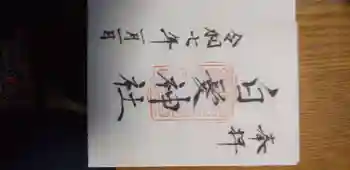 奉拝
白髭神社
令和七年一月一日